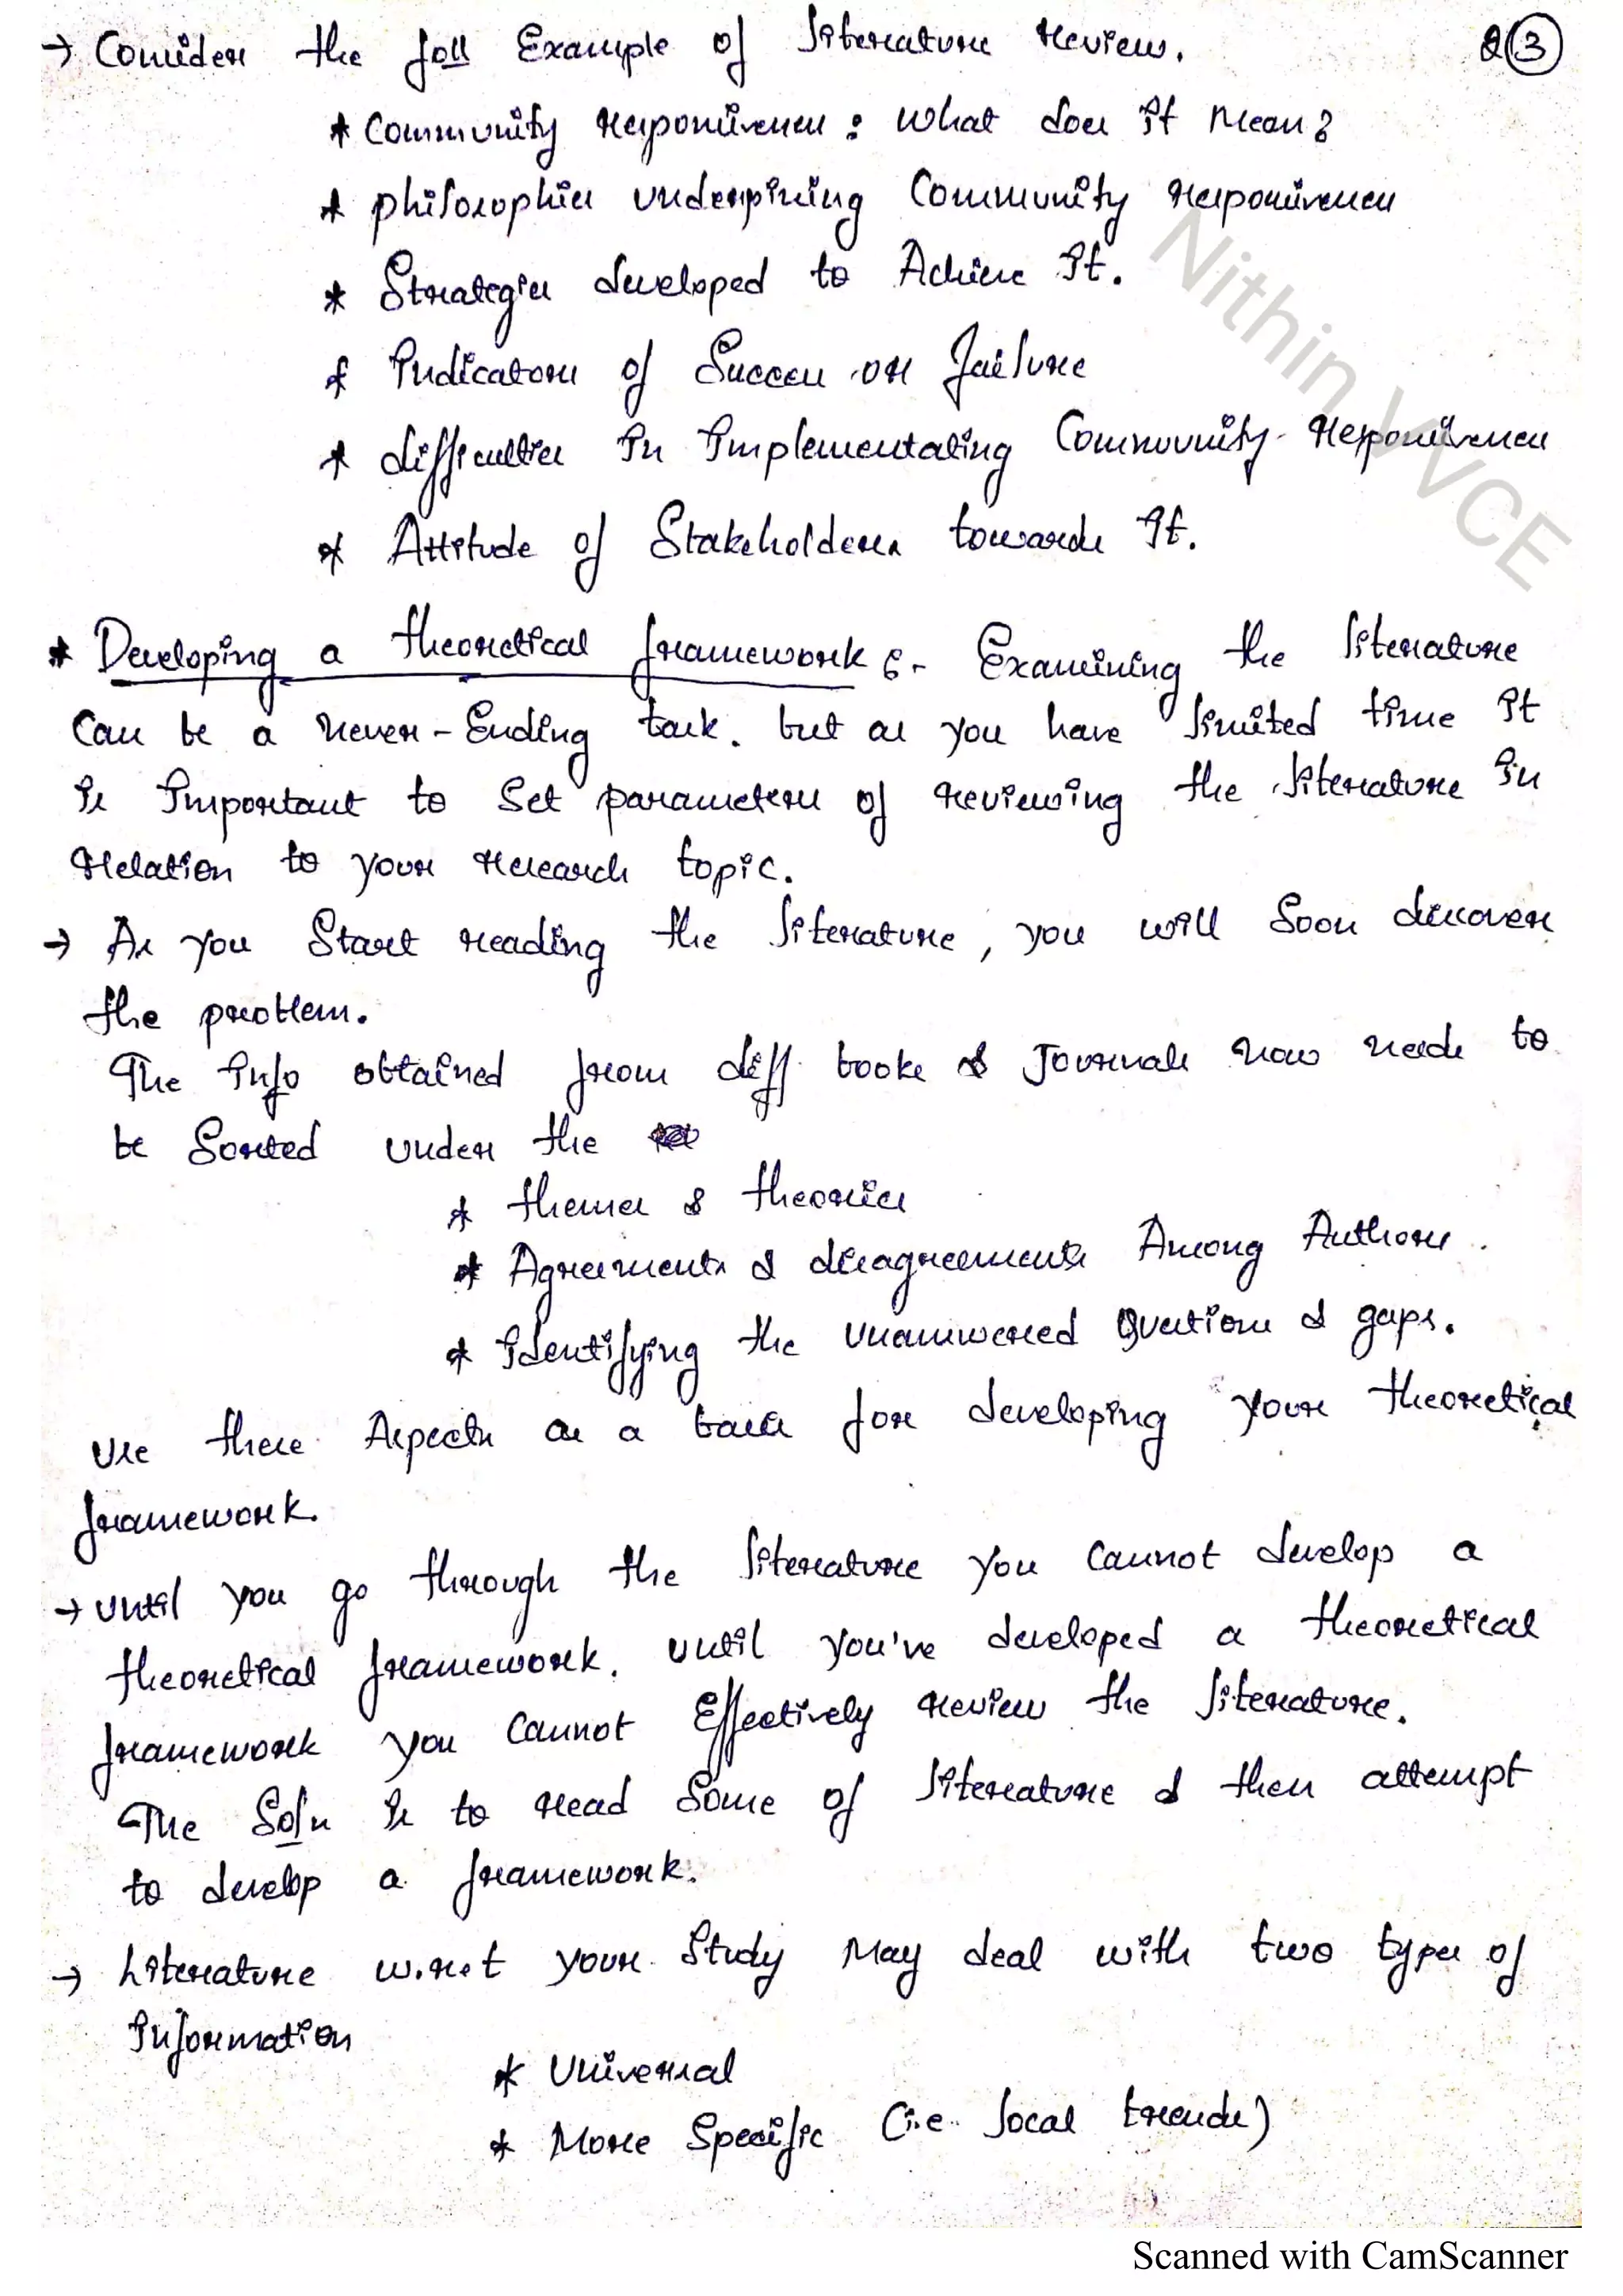 → Consider the foll Example of literature review. 2 3
* Community responsiveness : What does it mean?
* philosophies underpining Community responsiveness
* Strategies developed to Achieve it.
* Indicators of Success or failure
* difficulties in Implementating Community responsiveness
* Attitude of Stakeholders towards It.
* Developing a theoretical framework :- Examining the literature
Can be a never-Ending task. but as you have limited time it
is Important to Set parameters of reviewing the literature in
relation to your research topic.
→ As you Start reading the literature, you will Soon discover
the problem.
The Info obtained from diff books & Journals now needs to
be Sorted under the
* themes & theories
* Agreements & disagreements Among Authors.
* Identifying the unanswered Questions & gaps.
Use these Aspects as a basis for developing your theoretical
framework.
→ Until you go through the literature you Cannot develop a
theoretical framework. until you've developed a theoretical
framework you Cannot Effectively review the literature.
The Soln is to read Some of literature & then attempt
to develop a framework.
→ Literature w.r.t your Study May deal with two types of
Information
* Universal
* More Specific (i.e. local trends)
Nithin VVCE
Scanned with CamScanner